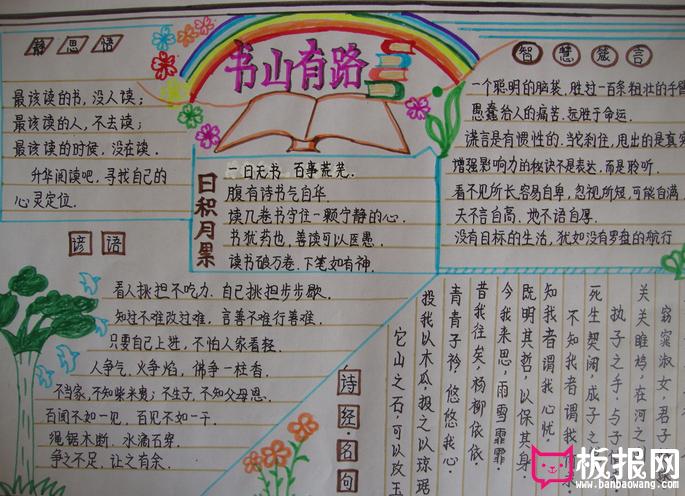 静思语
最该读的书,没人读;
最该读的人,不去读;
最该读的时候,没在读.
升华阅读吧,寻找自己的
心灵定位.
书山有路
日积月累
一日无书 百事荒芜.
腹有诗书气自华.
读几卷书守住一颗宁静的心.
书犹药也,善读可以医愚.
读书破万卷、下笔如有神.
智慧箴言
一个聪明的脑袋,胜过一百条粗壮的手臂
愚蠢给人的痛苦.远胜于命运.
谎言是有惯性的.当它刹住,甩出的是真实
增强影响力的秘诀不是表达.而是聆听.
看不见所长,容易自卑,忽视所短,可能自满.
天不言自高.地不语自厚.
没有目标的生活,犹如没有罗盘的航行
谚语
看人挑担不吃力.自己挑担步步歇.
知过不难改过难,言善不难行善难.
只要自己上进,不怕人家看轻.
人争气,火争焰,佛争一柱香.
不当家,不知柴米贵;不生子,不知父母恩.
百闻不如一见,百见不如一干.
绳锯木断,水滴石穿.
争之不足,让之有余.
诗经·名句
窈窕淑女,君子
关关雎鸠,在河之
执子之手,与子
死生契阔,成子之
不知我者谓我
知我者谓我心忧,
既明其哲,以保其身.
今我来思,雨雪霏霏
昔我往矣,杨柳依依.
青青子衿,悠悠我心.
投我以木瓜.投之以琼琚
它山之石,可以攻玉
板报网
www.banbaowang.com